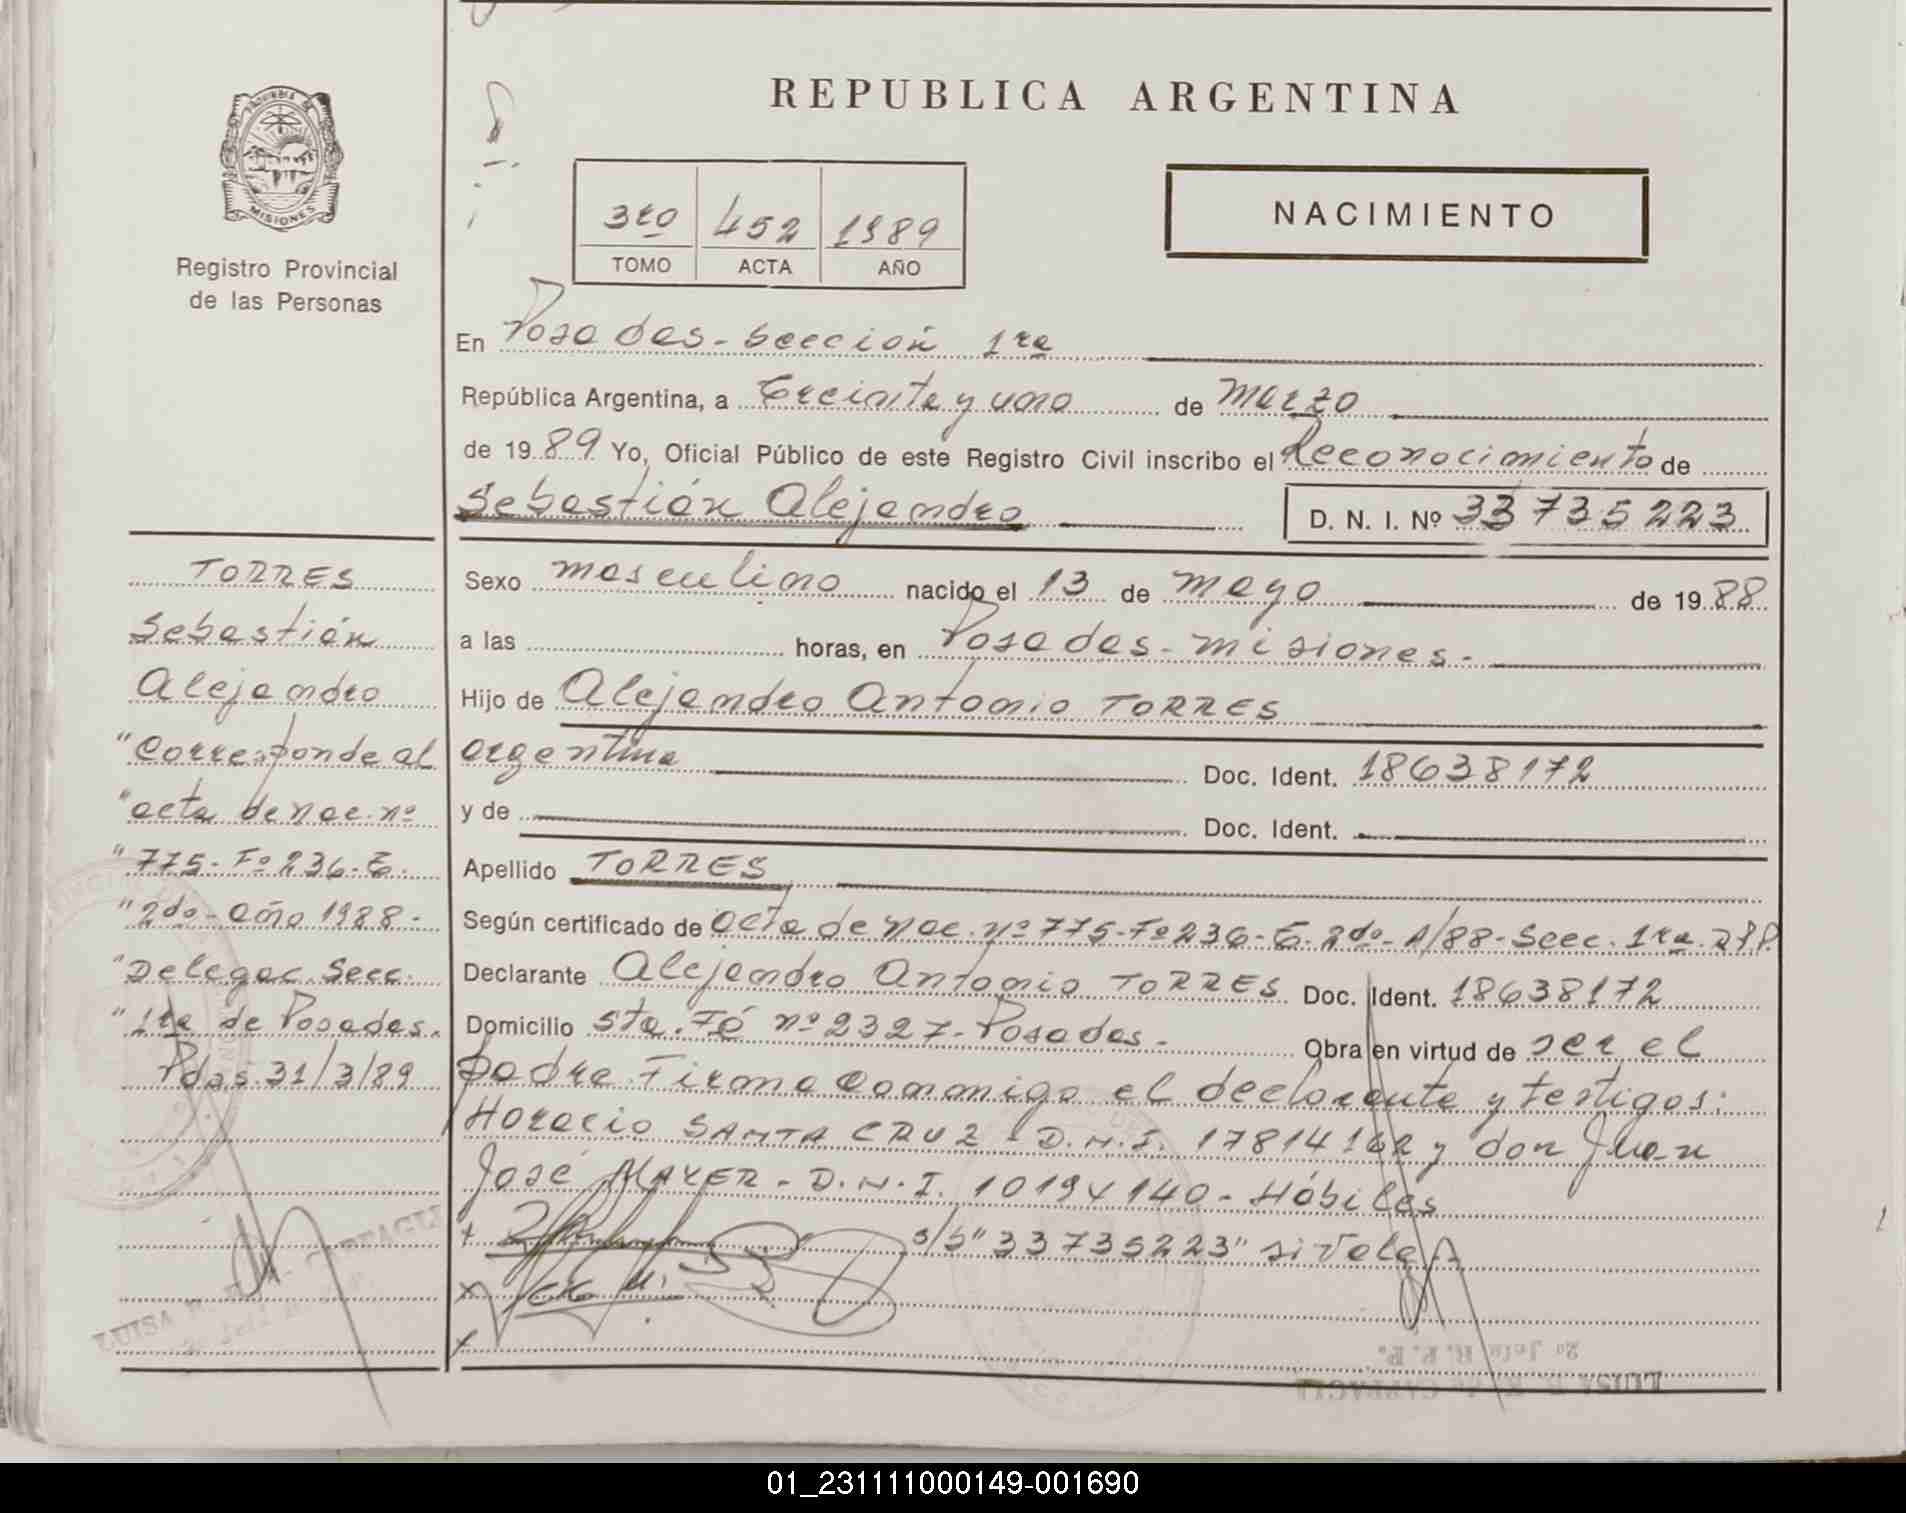 REPUBLICA ARGENTINA
PROVINCIA DE
MISIONES
Registro Provincial
de las Personas
3ro 452 1989
TOMO ACTA AÑO
NACIMIENTO
En Posadas - Sección 1ra
República Argentina, a treinta y uno de Marzo
de 1989 Yo, Oficial Público de este Registro Civil inscribo el Reconocimiento de
Sebastián Alejandro D. N. I. Nº 33735223
TORRES
Sebastián
Alejandro
"Corresponde al
"acta de nac. nº
"775-Fº236-T.
"2do-año 1988-
"Delegac. Secc.
"1ra de Posadas.
Pdas. 31/3/89
Sexo masculino nacido el 13 de mayo de 1988
a las horas, en Posadas - Misiones.
Hijo de Alejandro Antonio TORRES
argentina Doc. Ident. 18638172
y de Doc. Ident.
Apellido TORRES
Según certificado de acta de nac. nº 775-Fº236-T. 2do-A/88-Secc. 1ra R.P.P.
Declarante Alejandro Antonio TORRES Doc. Ident. 18638172
Domicilio Sta. Fé nº 2327-Posadas. Obra en virtud de ser el
padre. Firma conmigo el declarante y testigos:
Horacio SANTA CRUZ - D.N.I. 17814162 y don Juan
José MAYER - D.N.I. 10194140 - Hábiles
s/b "33735223" si vale
2º Jefe R. P. P.
01_231111000149-001690